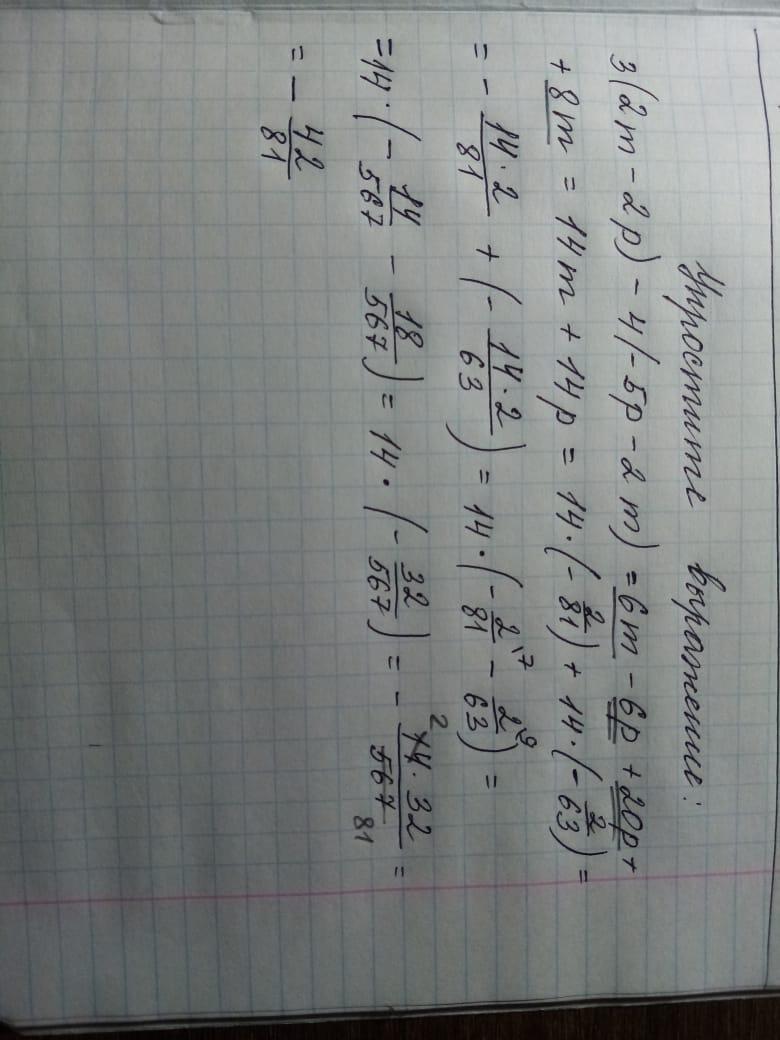 Упростите выражение:
3(2m - 2p) - 4(-5p - 2m) = 6m - 6p + 20p +
+ 8m = 14m + 14p = 14·(-2/81) + 14·(-2/63) =
= - 14·2/81 + (- 14·2/63) = 14·(- 2/81 \7 - 2/63 \9) =
= 14·(- 14/567 - 18/567) = 14·(- 32/567) = - 2 14·32/567 81 =
= - 42/81